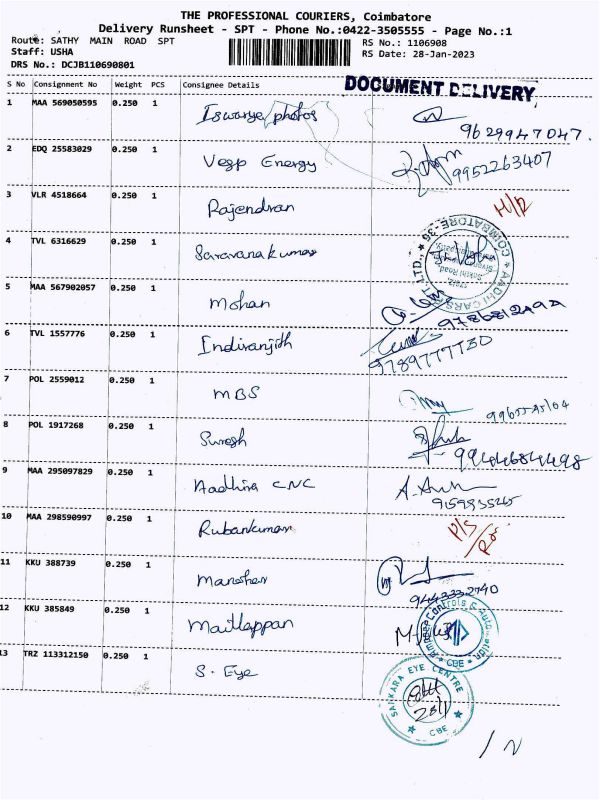 THE PROFESSIONAL COURIERS, Coimbatore
Delivery Runsheet - SPT - Phone No.:0422-3505555 - Page No.:1
Route: SATHY MAIN ROAD SPT
RS No.: 1106908
Staff: USHA
RS Date: 28-Jan-2023
DRS No.: DCJB110690801
S No Consignment No Weight PCS Consignee Details
DOCUMENT DELIVERY
1 MAA 569050595 0.250 1 Iswarya photos
9629947047.
2 EDQ 25583029 0.250 1 Vegp Energy
9952263407
3 VLR 4518664 0.250 1 Rajendran
4 TVL 6316629 0.250 1 Saravanakumar
COIMBATORE-35
AADHI CARS
Sathi Road
5 MAA 567902057 0.250 1 Mohan
6 TVL 1557776 0.250 1 Indiranjith
9789777730
7 POL 2559012 0.250 1 MBS
8 POL 1917268 0.250 1 Suresh
9944684498
9 MAA 295097829 0.250 1 Aadhira CNC
10 MAA 298590997 0.250 1 Rubankumar
11 KKU 388739 0.250 1
9443332740
12 KKU 385849 0.250 1
Controls &
CBE
13 TRZ 113312150 0.250 1 S. Eye
SANKARA EYE CENTRE
28/1
CBE